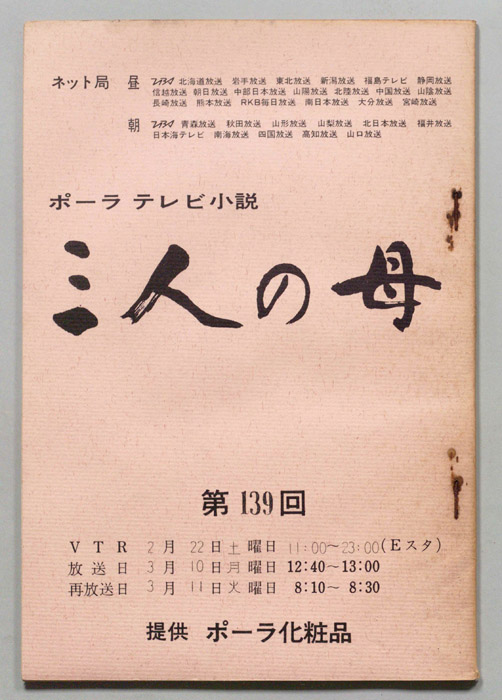 ネット局 昼 TBS 北海道放送 岩手放送 東北放送 新潟放送 福島テレビ 静岡放送
信越放送 朝日放送 中部日本放送 山陽放送 北陸放送 中国放送 山陰放送
長崎放送 熊本放送 RKB毎日放送 南日本放送 大分放送 宮崎放送
朝 TBS 青森放送 秋田放送 山形放送 山梨放送 北日本放送 福井放送
日本海テレビ 南海放送 四国放送 高知放送 山口放送
ポーラ テレビ小説
三人の母
第139回
VTR 2月 22日 土 曜日 11:00~23:00(Eスタ)
放送日 3月 10日 月 曜日 12:40~13:00
再放送日 3月 11日 火 曜日 8:10~ 8:30
提供 ポーラ化粧品